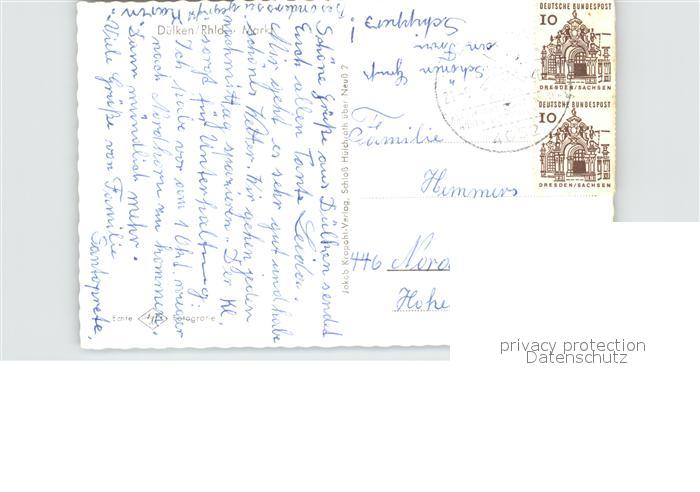 Dülken/Rhld. Markt
Schöne Grüße aus Dülken sendet
Euch allen Tante Leida.
Mir geht es sehr gut und habe
schönes Wetter. Wir gehen jeden
nachmittag spazieren. Der Kl.
sorgt für Unterhaltung.
Ich habe vor am 1 Okt.
nach Nordhorn zu kommen.
Dann mündlich mehr.
Viele Grüße von Familie
Echte Fotografie
Jakob Krapohl-Verlag, Schloß Hülchrath über Neuß 2
Schönen Gruß
an Fam
Schippers!
DEUTSCHE BUNDESPOST
10
DRESDEN/SACHSEN
DEUTSCHE BUNDESPOST
10
DRESDEN/SACHSEN
Familie
Hemmers
446 Nord
Hohe
privacy protection
Datenschutz